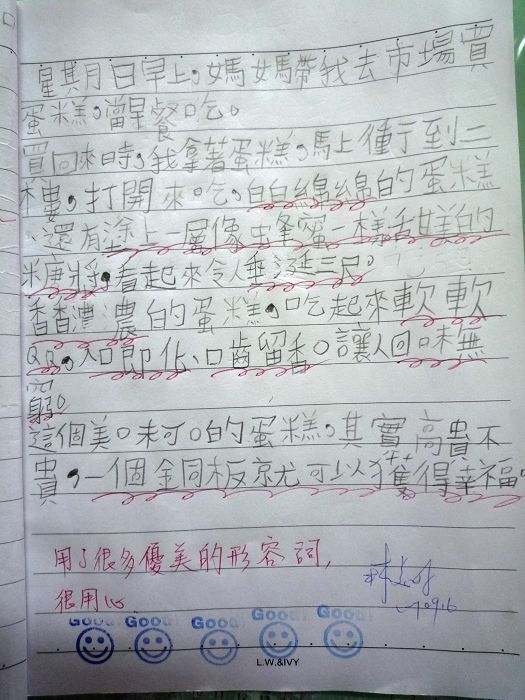 星其月日早上,媽媽帶我去市場買
蛋糕,當早餐吃。
買回來時,我拿著蛋糕,馬上衝了到二
樓,打開來吃,白白綿綿的蛋糕
還有塗上一層像蜂蜜一樣甜美的
糖將,看起來令人垂涎三尺。
香香濃濃的蛋糕,吃起來軟軟
QQ,入口即化、口齒留香。讓人回味無
窮。
這個美味可口的蛋糕,其實高貴不
貴,一個金同板就可以獲得幸福。
用了很多優美的形容詞,
很用心.
Good! Good! Good! Good! Good!
L.W.&IVY